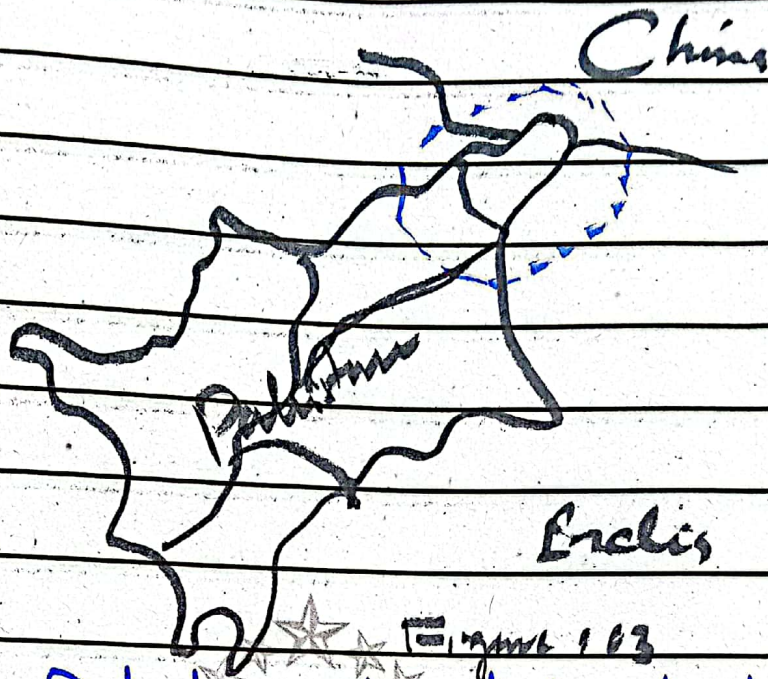 China
Pakistan
India
Figure 103